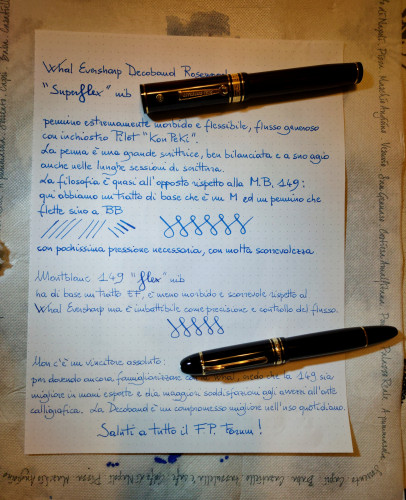 Wahl Eversharp Decoband
"Superflex" nib
pennino estremamente morbido e flessibile, flusso generoso
con inchiostro Pilot "Kon Peki".
La penna è una grande scrittrice, ben bilanciata e a suo agio
anche nelle lunghe sessioni di scrittura.
La filosofia è quasi all'opposto rispetto alla M.B. 149:
qui abbiamo un tratto di base che è un M ed un pennino che
flette sino a BB
con pochissima pressione necessaria, con molta scorrevolezza
Montblanc 149 "flex" nib
ha di base un tratto EF, è meno morbido e scorrevole rispetto al
Wahl Eversharp ma è imbattibile come precisione e controllo del flusso.
Non c'è un vincitore assoluto:
pur dovendo ancora familiarizzare con la Wahl, credo che la 149 sia
migliore in mani esperte e dia maggiori soddisfazioni agli avvezzi all'arte
calligrafica. La Decoband è un compromesso migliore nell'uso quotidiano.
Saluti a tutto il F.P. Forum!